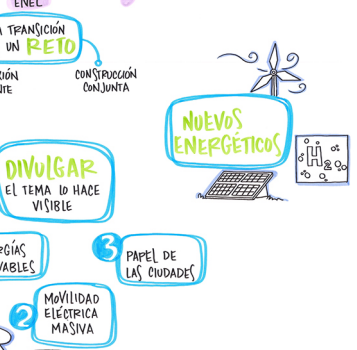 ENEL
TRANSICIÓN
UN RETO
CONSTRUCCIÓN
CONJUNTA
NUEVOS
ENERGÉTICOS
H2
DIVULGAR
EL TEMA LO HACE
VISIBLE
3 PAPEL DE
LAS CIUDADES
2 MOVILIDAD
ELÉCTRICA
MASIVA